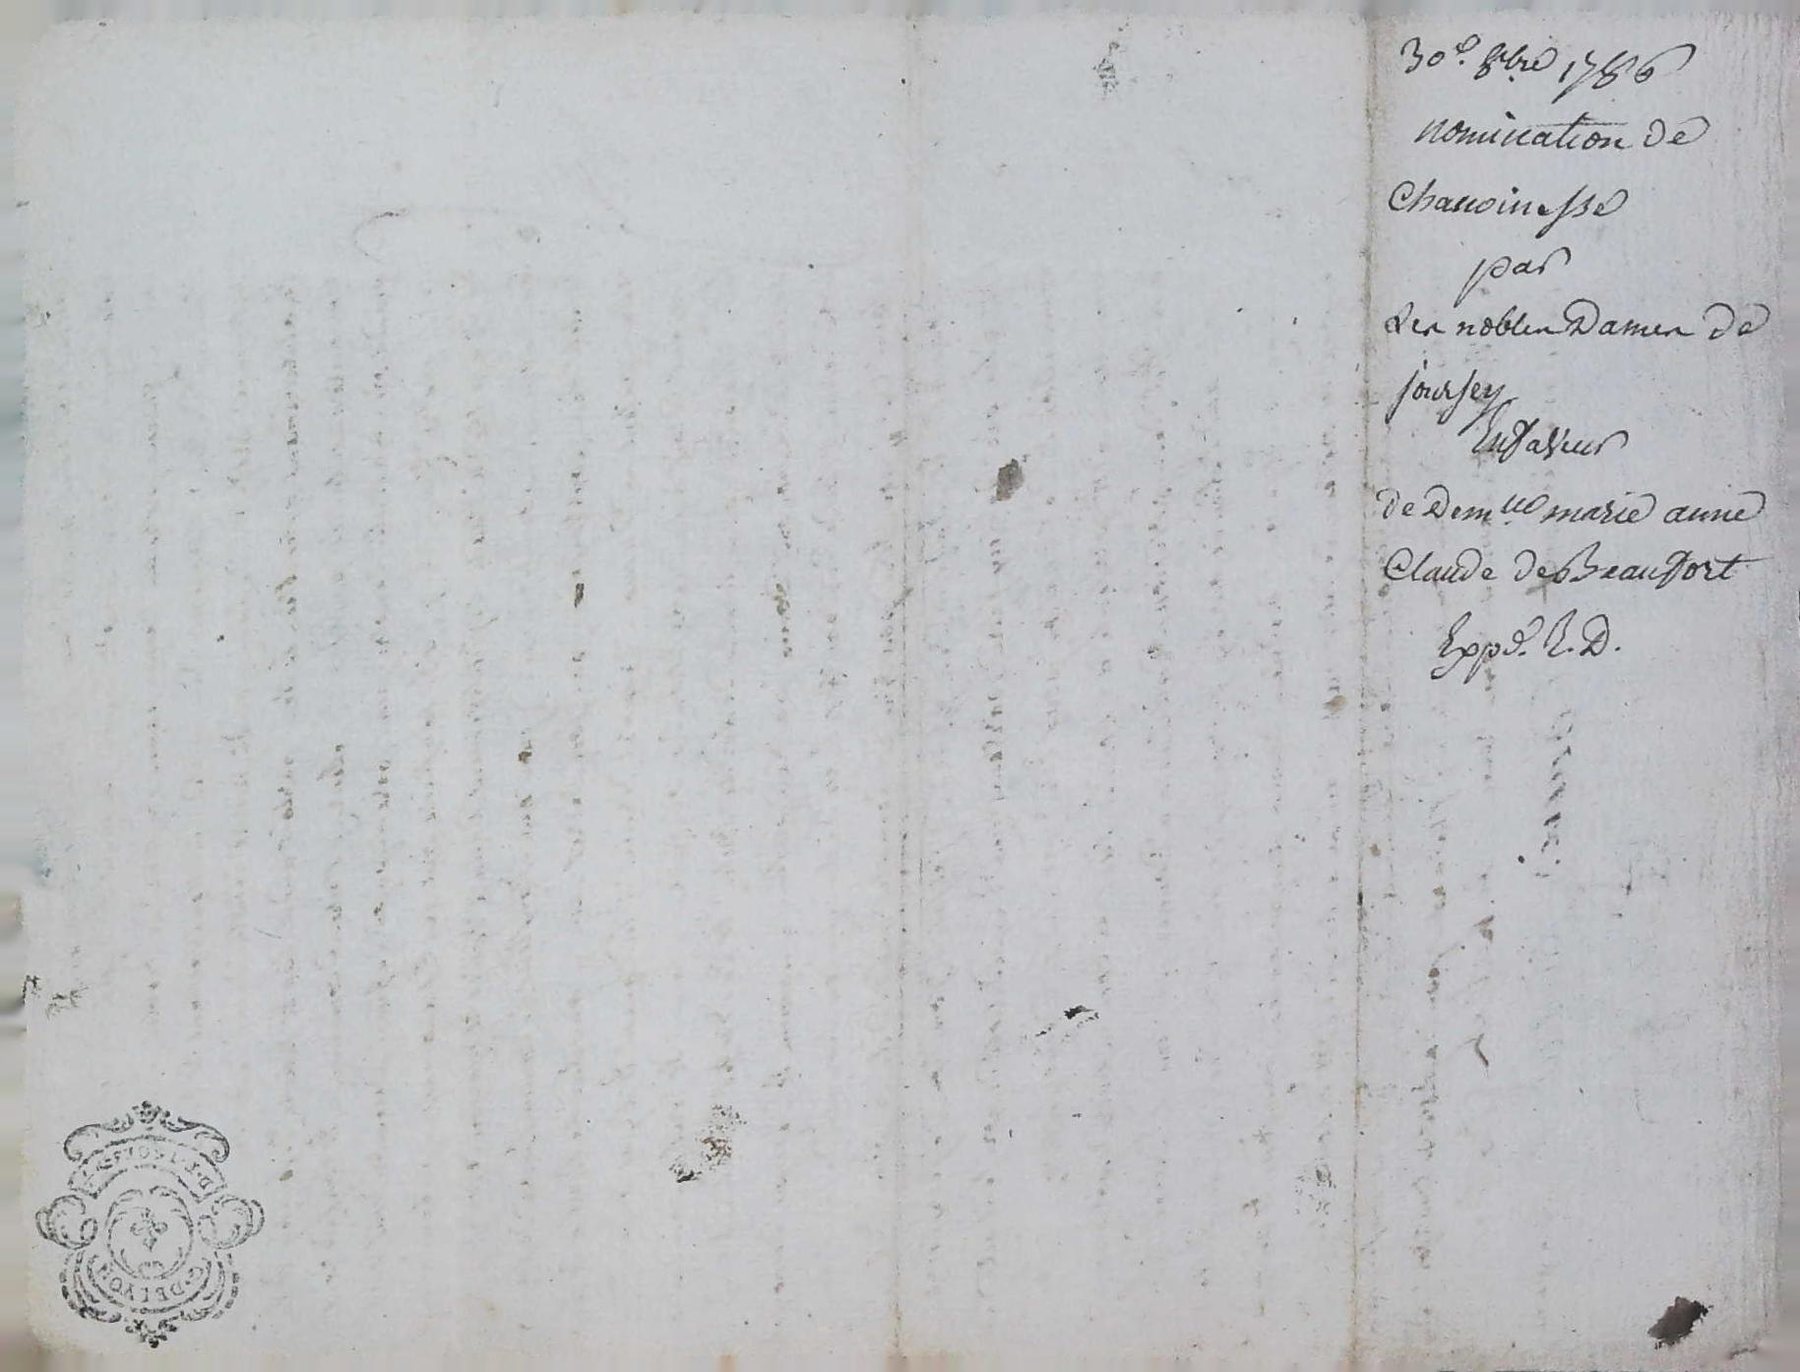 30e. 8bre 1786
nomination de
Chanoinesse
par
Les nobles Dames de
joursey
En faveur
de Demlle marie anne
Claude de Beaufort
Expd. E. D.
G. DE LYON